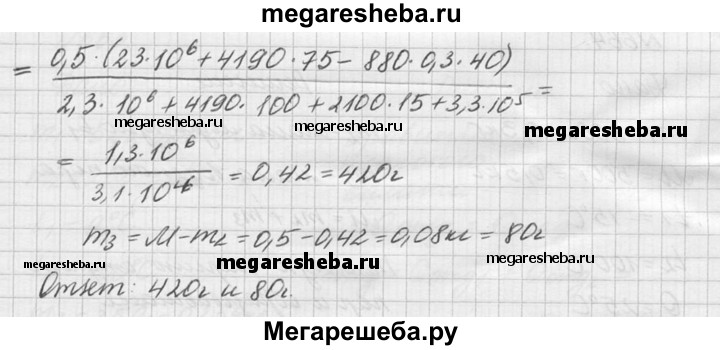 megaresheba.ru
= 0,5·(23·10⁶+4190·75−880·0,3·40)
2,3·10⁶+4190·100+2100·15+3,3·10⁵ =
megaresheba.ru megaresheba.ru megaresheba.ru
= 1,3·10⁶
3,1·10⁶ = 0,42 = 420г
m₃ = M−m₂ = 0,5−0,42 = 0,08кг = 80г
megaresheba.ru megaresheba.ru megaresheba.ru
Ответ: 420г и 80г.
Мегарешеба.ру